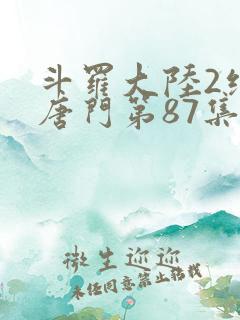 斗羅大陸2
唐門第87集
微生迎迎
未经同意禁止转载